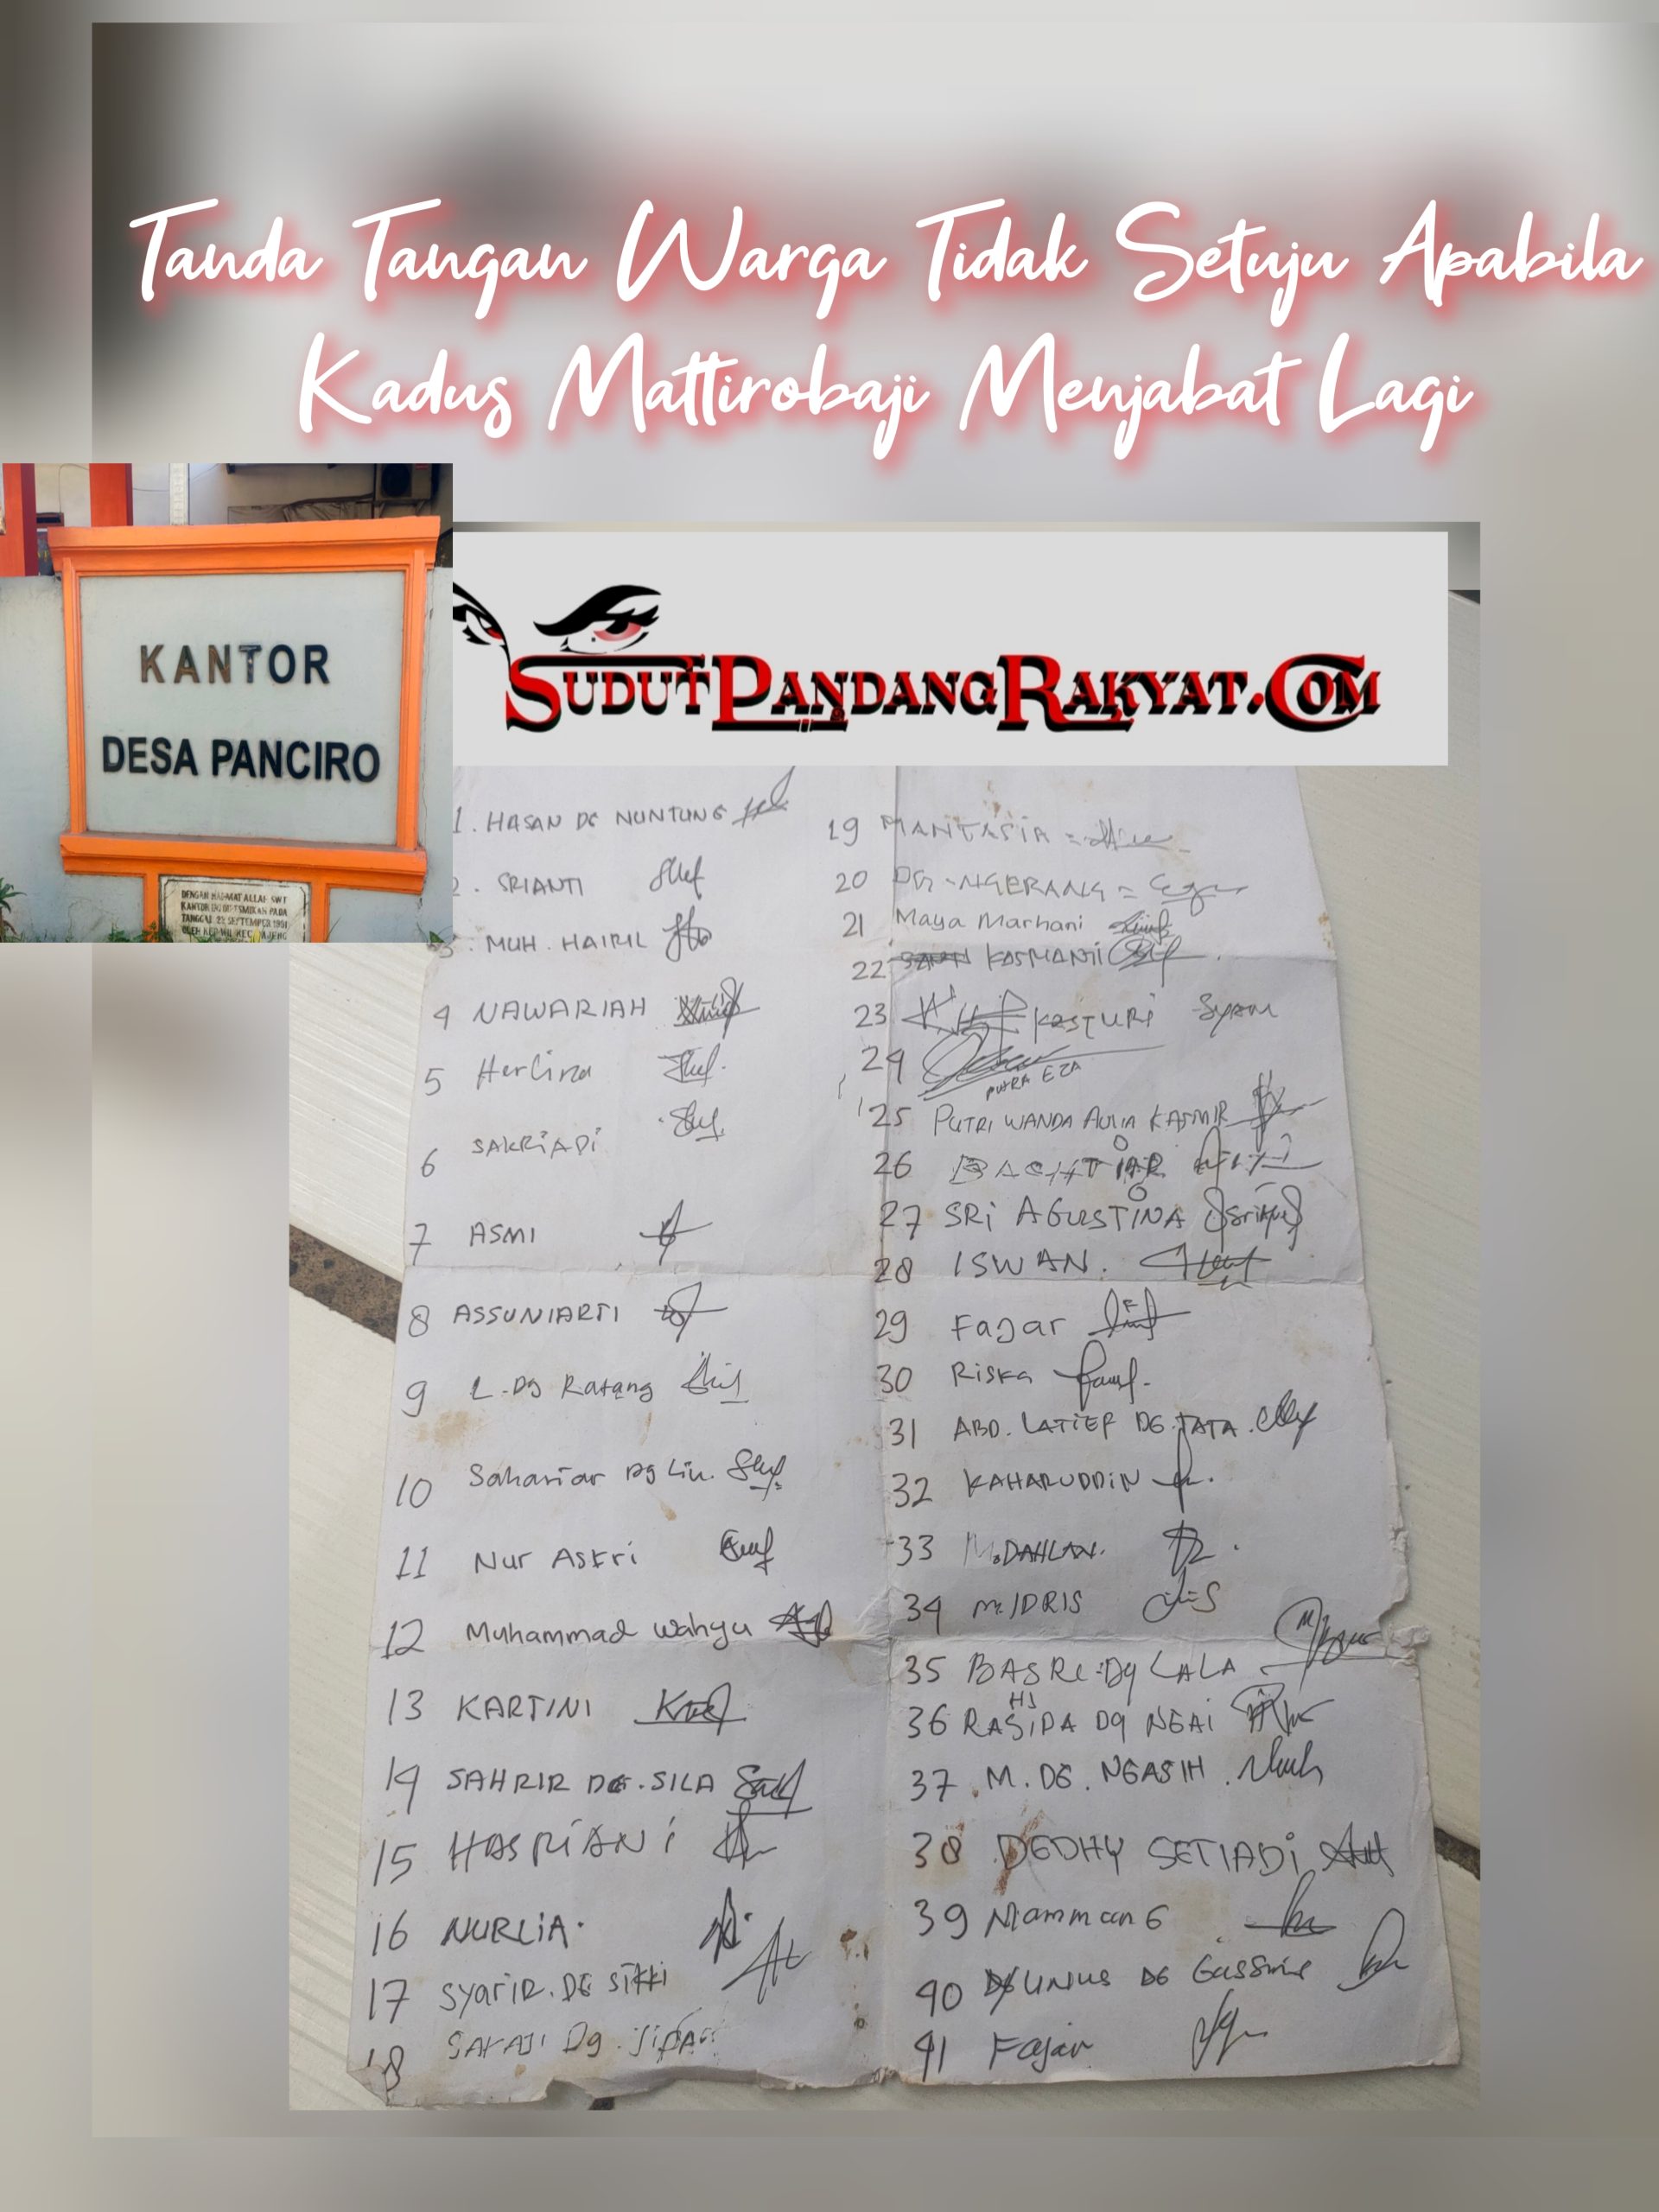 Tanda Tangan Warga Tidak Setuju Apabila
Kadus Mattirobaji Menjabat Lagi
KANTOR
DESA PANCIRO
DENGAN RAHMAT ALLAH SWT
KANTOR INI DIRESMIKAN PADA
TANGGAL 23 SEPTEMBER 1991
SUDUTPANDANGRAKYAT.COM
1. HASAN DG NUNTUNG
2. SRIANTI
3. MUH. HAIRIL
4 NAWARIAH
5 Herlina
6 SAKRIADI
7 ASMI
8 ASSUNIARTI
9 L. Dg Ratang
10 Sahariar Dg Liu.
11 Nur Askri
12 Muhammad Wahyu
13 KARTINI
14 SAHRIR DG. SILA
15 HASRIANI
16 NURLIA.
17 Syarir. DG Sikki
18 Dg.
19 MANTASIA =
20 DG. NGERANG =
21 Maya Marhani
22 KASMANTI
23 KASTURI Syam
24 PUTRA EZA
25 PUTRI WANDA AULIA KASMIR
26 BACHTIAR
27 SRI AGUSTINA
28 ISWAN.
29 Fajar
30 Riska
31 ABD. LATIEF DG. TATA.
32 KAHARUDDIN
33 M. DAHLAN.
34 M. IDRIS
35 BASRI. Dg LALA
36 HJ RASIDA Dg NGAI
37. M. DG. NGASIH.
38 DEDHY SETIADI
39 Mammang
40 UNIUS DG
41 Fajar